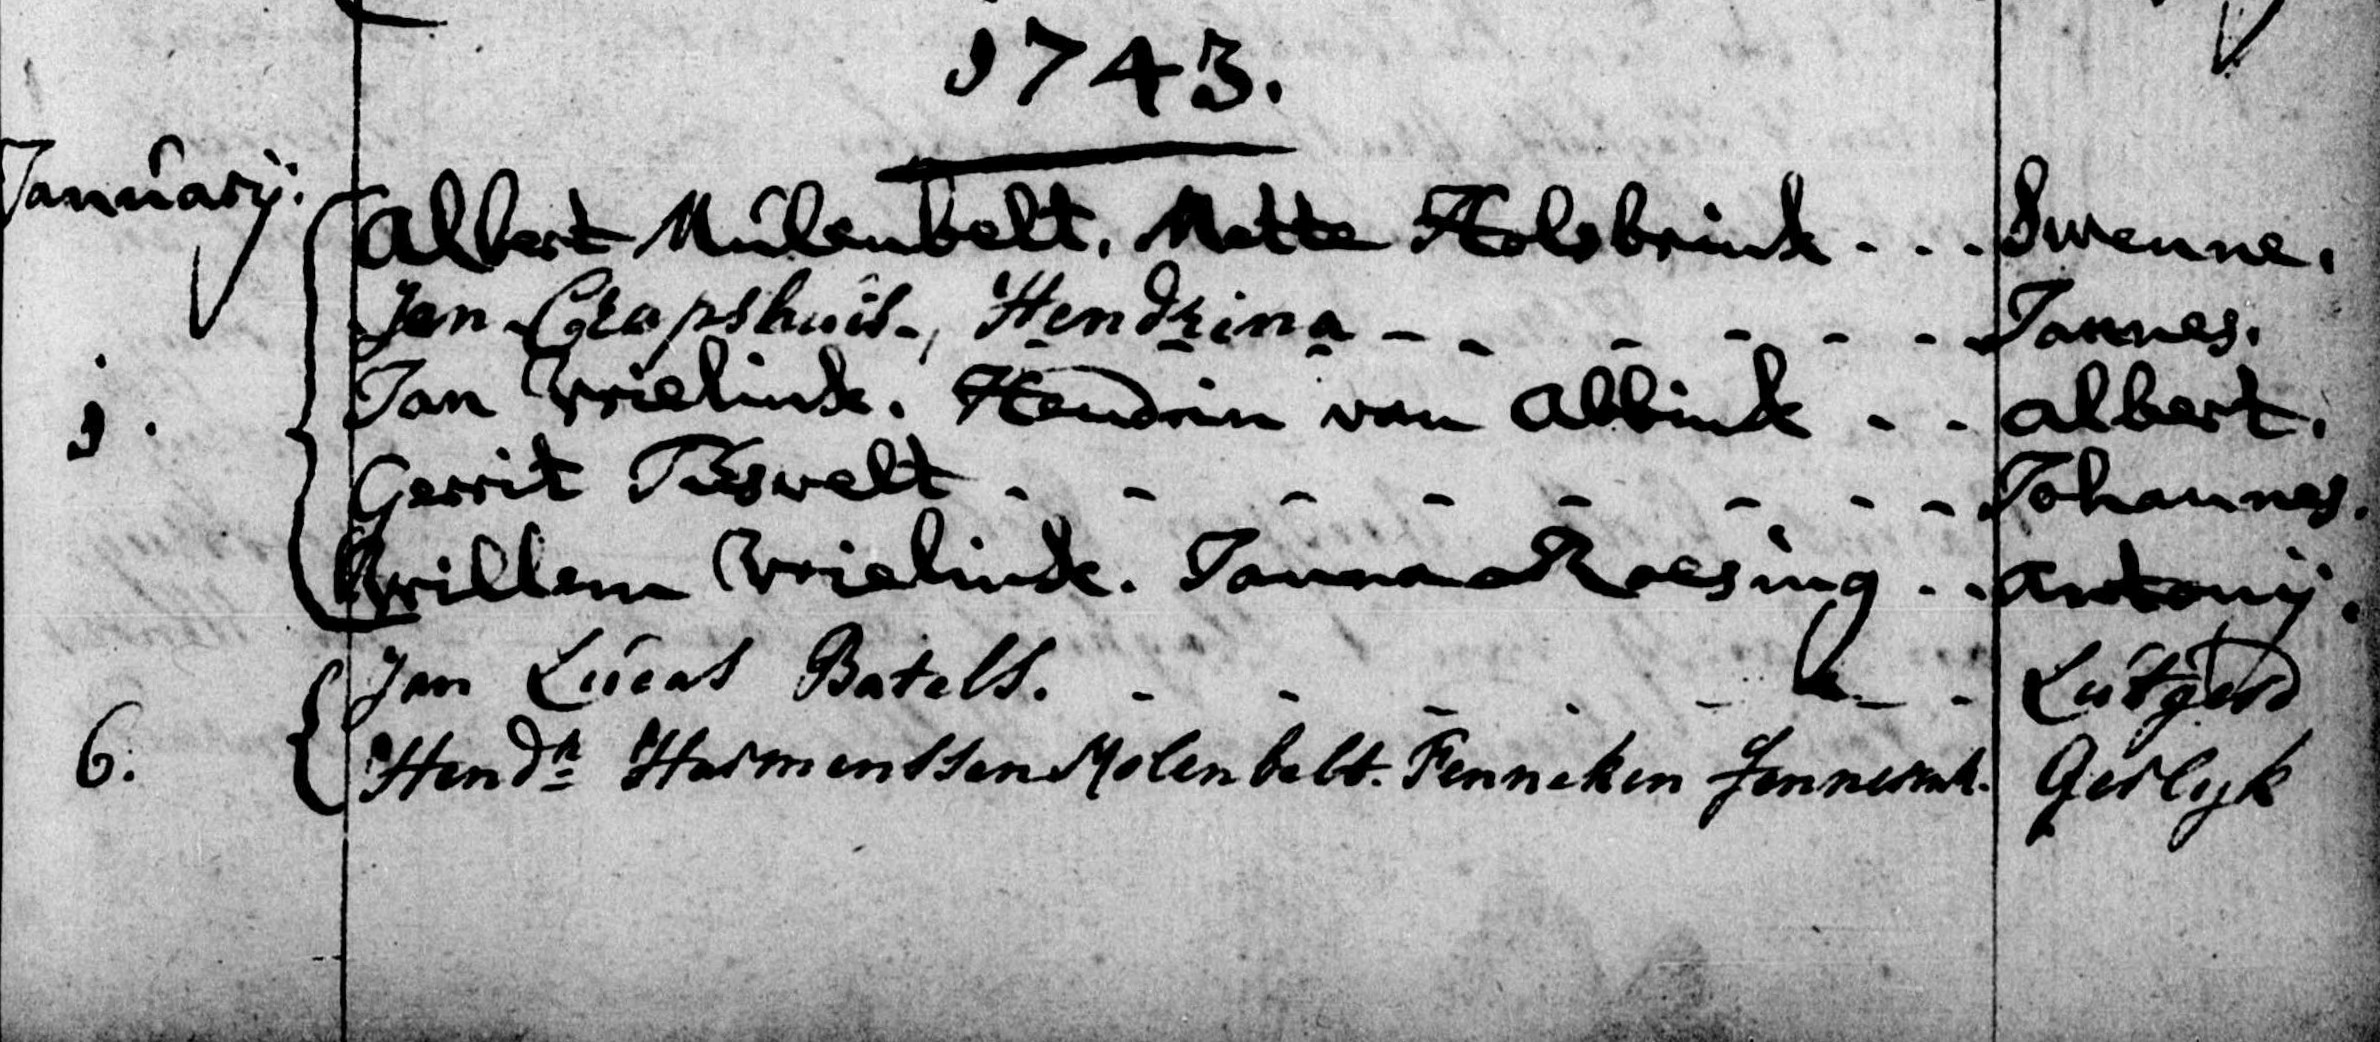 1743.
Januarij.
Albert Mulenbelt. Mette Holsbrink . . . Swenne.
Jan Grapshuis, Hendrina - - - - - - Jannes.
Jan Vrielink. Hendrin van Abbink . . Albert.
1. Gerrit Teeswelt - - - - - - - - Johannes.
Willem Vrielink. Janna Roesing . . Antonij.
Jan Lucas Batels. - - - - - - - Lutgerd
6. Hendr Harmenssen Molenbelt. Fenneken Gerlijk